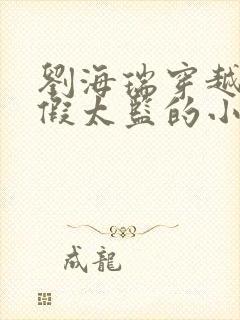 劉海瑞穿越
假太監的小
成龍